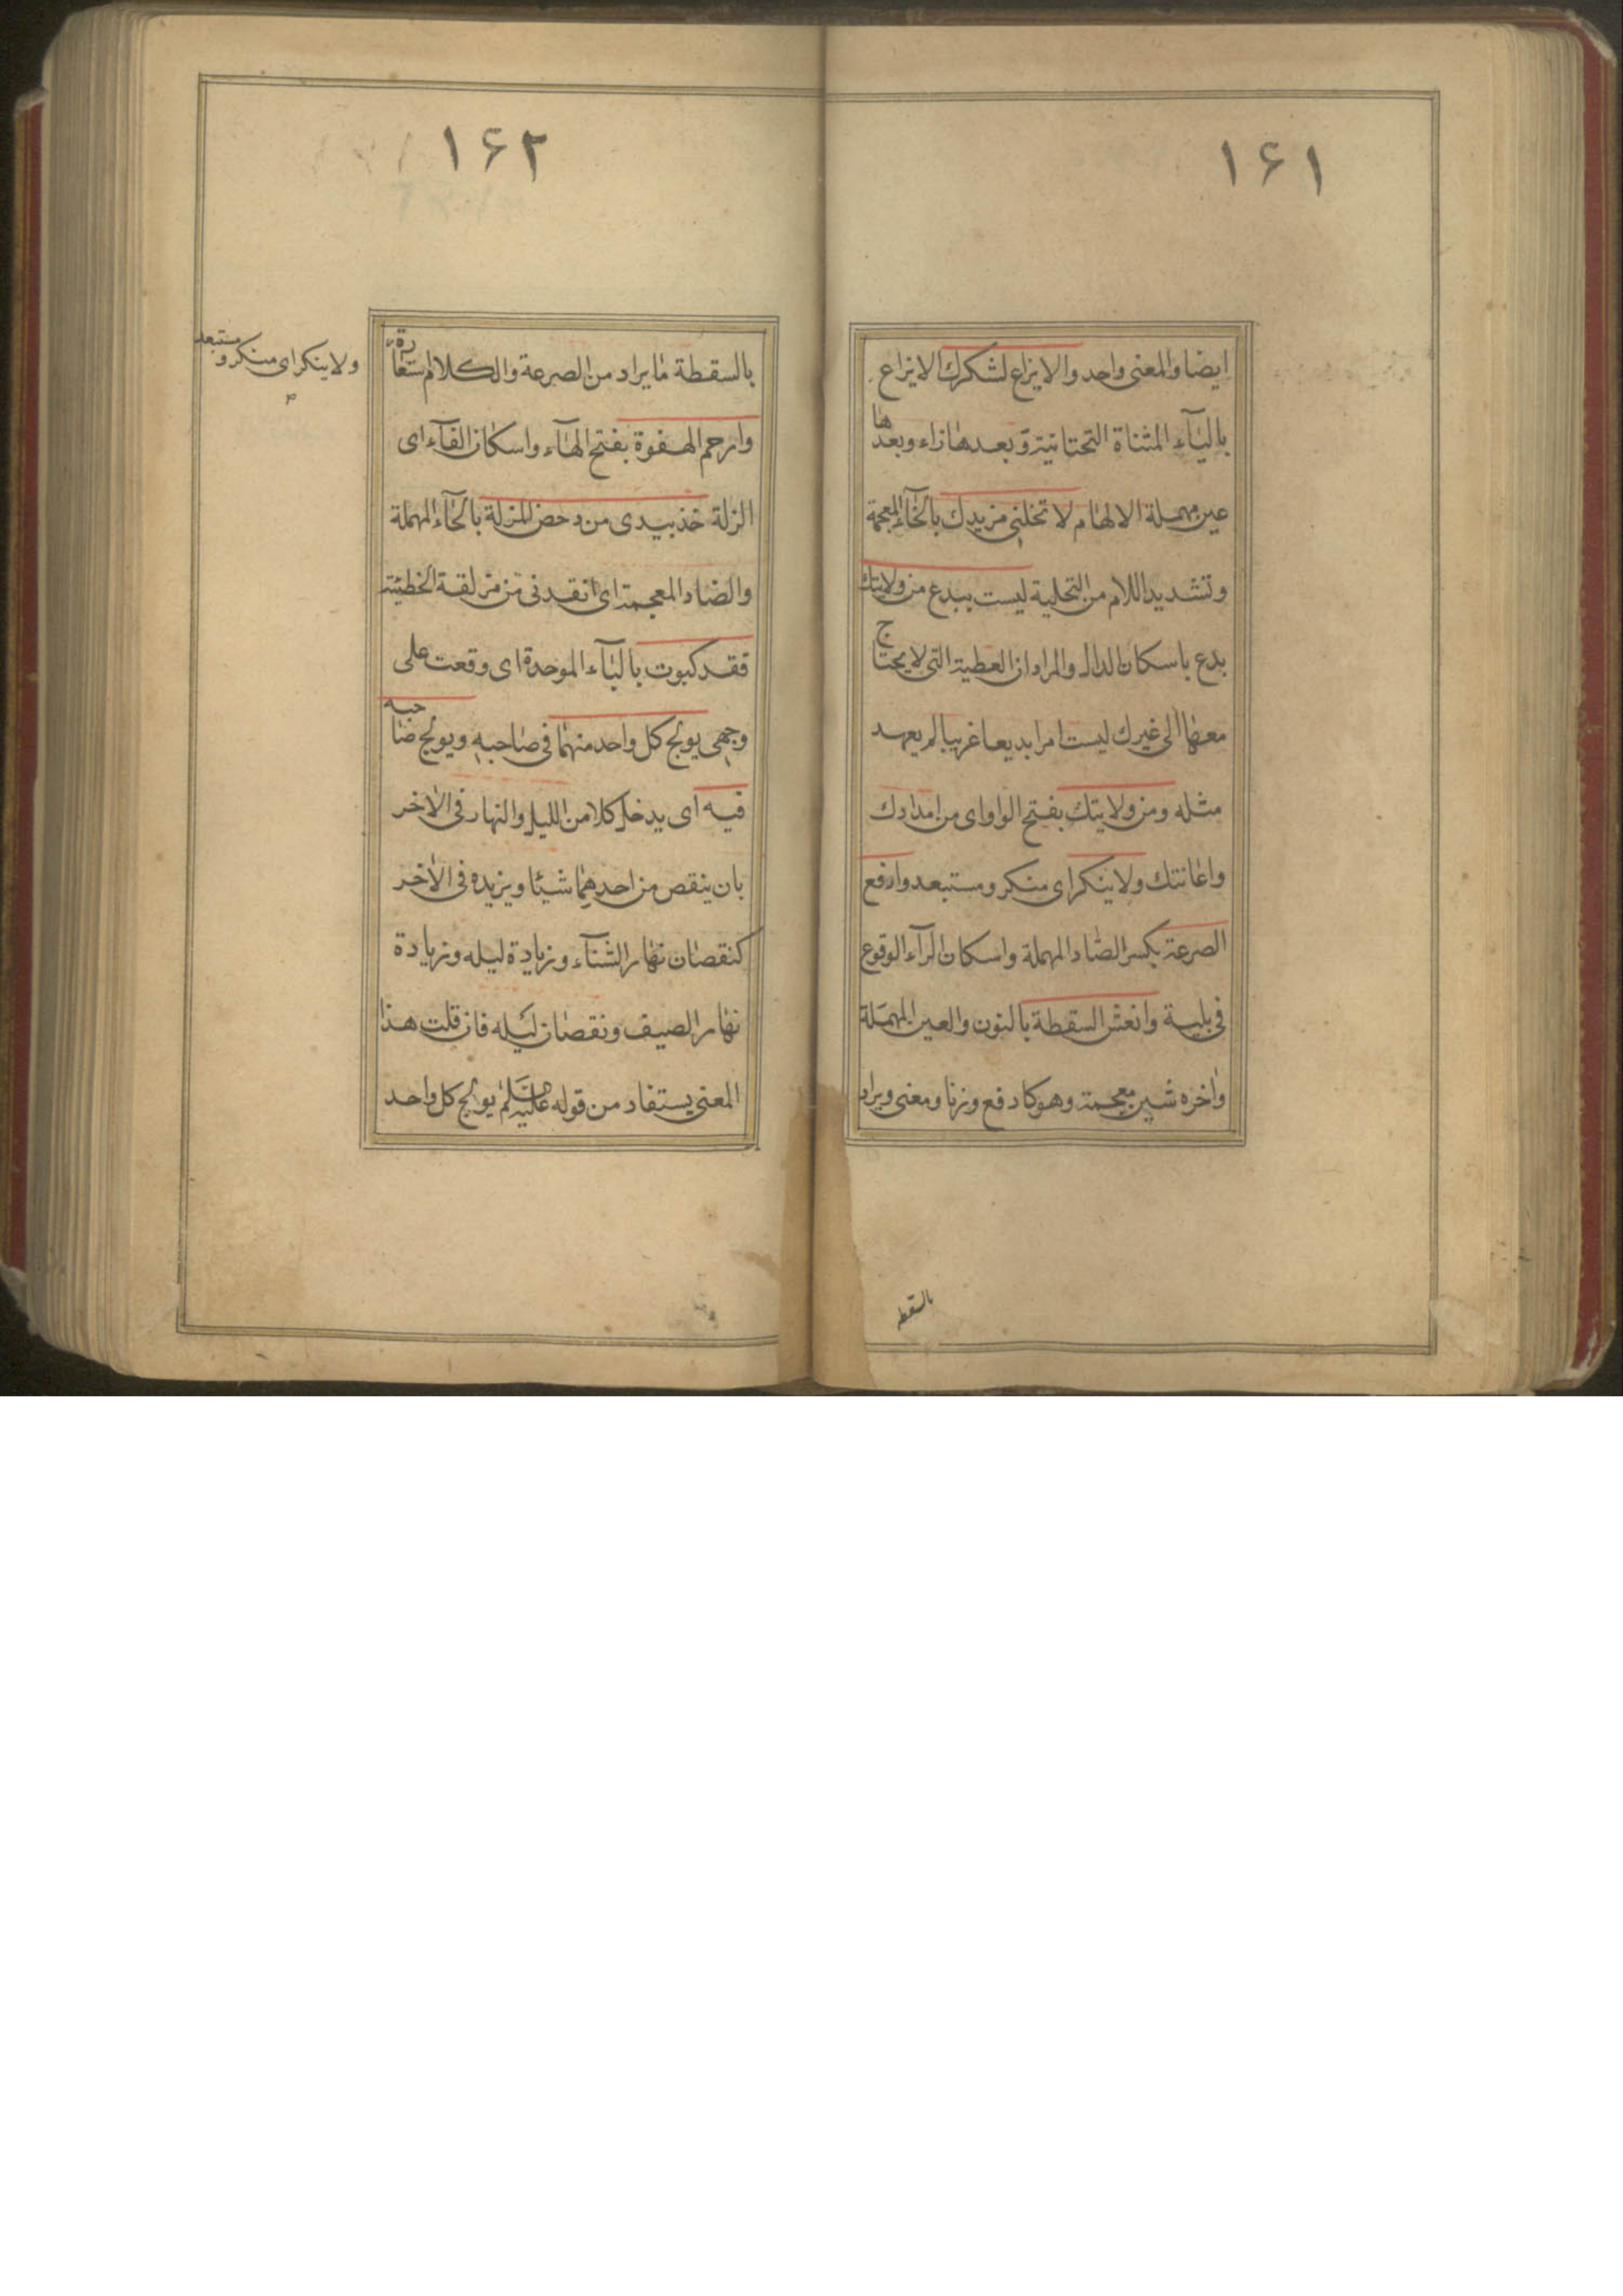 ۱۶۱
ايضا والمعنى واحد والايزاع لشكرك الايزاع
بالياء المثناة التحتانية وبعدها زاء وبعدها
عين مهملة الالهام لا تخلني من يدك بالخاء المعجمة
وتشديد اللام من التخلية ليست ببدع من ولايتك
بدع باسكان الدال والمراد ان العطية التي لا يحتاج
معها الى غيرك ليست امرا بديعا غريبا لم يعهد
مثله ومن ولايتك بفتح الواو اى من امدادك
واعانتك ولا ينكر اى منكر ومستبعد وارفع
الصرعة بكسر الصاد المهملة واسكان الرآء الوقوع
فى بلية وانعش السقطة بالنون والعين المهملة
واخره شين معجمة وهو كادفع وزنا ومعنى ويراد
بالسقطه
۱۶۲
بالسقطة ما يراد من الصرعة والكلام استعارة
وارحم الهفوة بفتح الهآء واسكان الفآء اى
الزلة خذ بيدى من دحض المزلة بالحآء المهملة
والضاد المعجمة اى انقذنى من مزلقة الخطيئة
فقد كبوت بالبآء الموحدة اى وقعت على
وجهى يولج كل واحد منهما فى صاحبه ويولج صاحبه
فيه اى يدخل كلا من الليل والنهار فى الاخر
بان ينقص من احدهما شيئا ويزيده فى الاخر
كنقصان نهار الشتآء وزيادة ليله وزيادة
نهار الصيف ونقصان ليله فان قلت هذا
المعنى يستفاد من قوله عليه السلم يولج كل واحد
ولا ينكر اى منكر و مستبعد